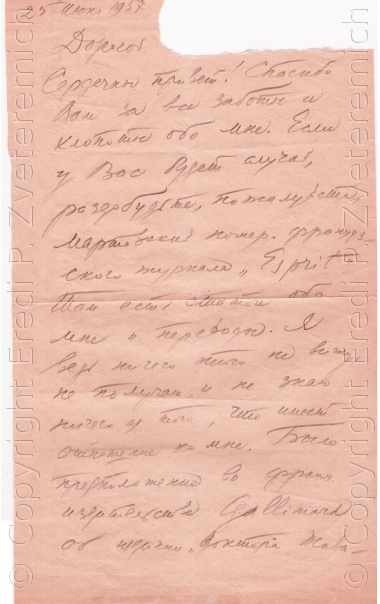 25 июня 1957
Дорогой
Сердечный привет! Спасибо
Вам за все заботы и
хлопоты обо мне. Если
у Вас будет случай,
раздобудьте, пожалуйста,
мартовский номер француз-
ского журнала „Esprit“
Там есть статьи обо
мне и переводы. Я
ведь ничего этого не вижу,
не получаю, и не знаю
ничего из того, что имеет
отношение ко мне. Было
предположение во франц.
издательстве Gallimard
об издании Доктора Жива-
© Copyright Eredi P. Zveteremich